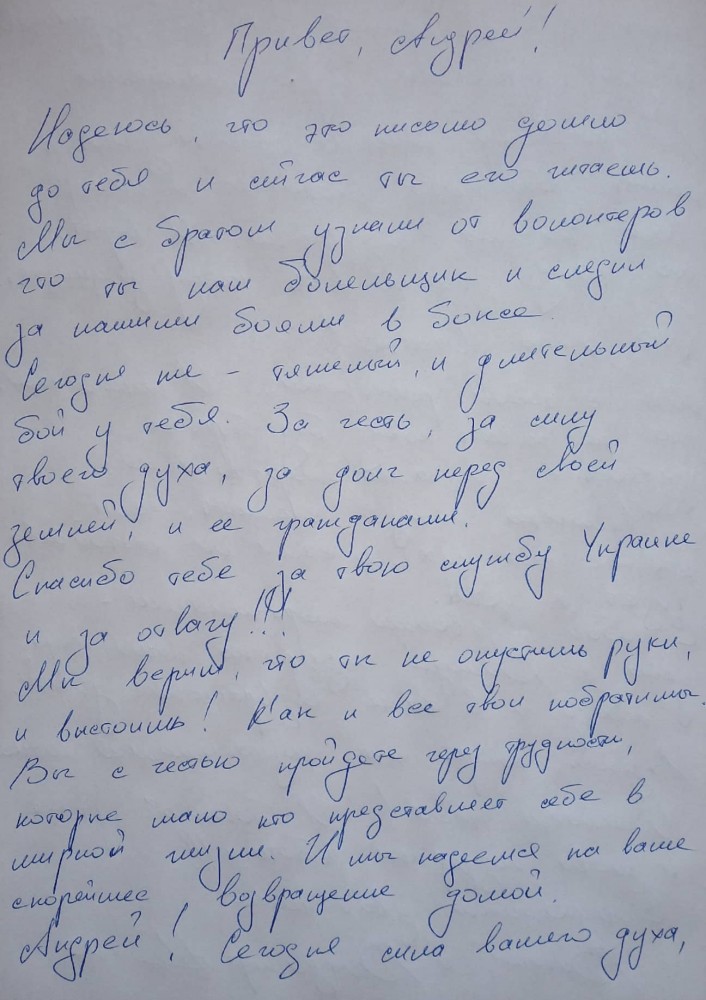 Привет, Андрей!
Надеюсь, что это письмо дошло
до тебя и сейчас ты его читаешь.
Мы с братом узнали от волонтеров
что ты наш болельщик и следил
за нашими боями в боксе.
Сегодня же - тяжелый, и длительный
бой у тебя. За честь, за силу
твоего духа, за долг перед своей
землей, и ее гражданами.
Спасибо тебе за твою службу Украине
и за отвагу!!!
Мы верим, что ты не опустишь руки,
и выстоишь! Как и все твои побратимы.
Вы с честью пройдете через трудности,
которые мало кто представляет себе в
мирной жизни. И мы надеемся на ваше
скорейшее возвращение домой.
Андрей! Сегодня сила вашего духа,